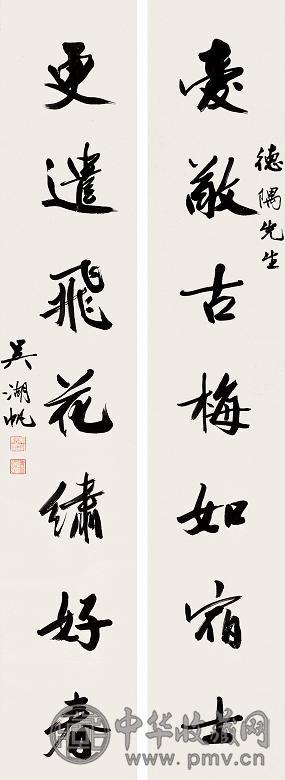 愛敬古梅如宿士
德隅先生
更遣飛花繡好春
吳湖帆
中华收藏网
www.pmv.cn